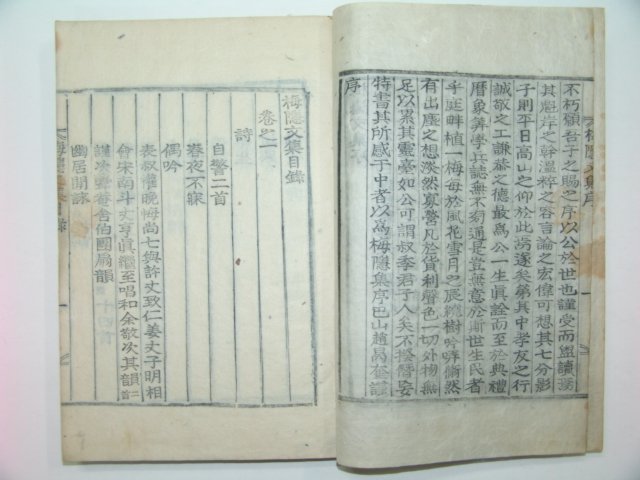 不朽顧吾子之賜之序以公於世也謹受而盥讀
其魁岸之幹溫粹之容言論之宏偉可想其七分影
子則平日高山之仰於此焉遂矣第其中孝友之行
誠敬之工謙恭之德最爲公一生眞詮而至於典禮
曆象筭學兵誌無不旁通是豈無意於斯世生民者
乎庭畔植一梅每於風花雪月之辰繞樹吟哢翛然
有出塵之想淡然寡營凡於貨利聲色一切外物無
足以累其靈臺如公可謂叔季君子人矣不揆僭妄
特書其所感于中者以爲梅隱集序巴山趙昺奎謹
序
梅隱文集序
梅隱文集目錄
卷之一
詩
自警二首
春夜不寐
偶吟
表叔權晚悔尚七與許丈致仁姜丈子明相
會宋南斗丈亨眞繼至唱和余敬次其韻二首
謹次
舍伯國扇韻
幽居閒詠